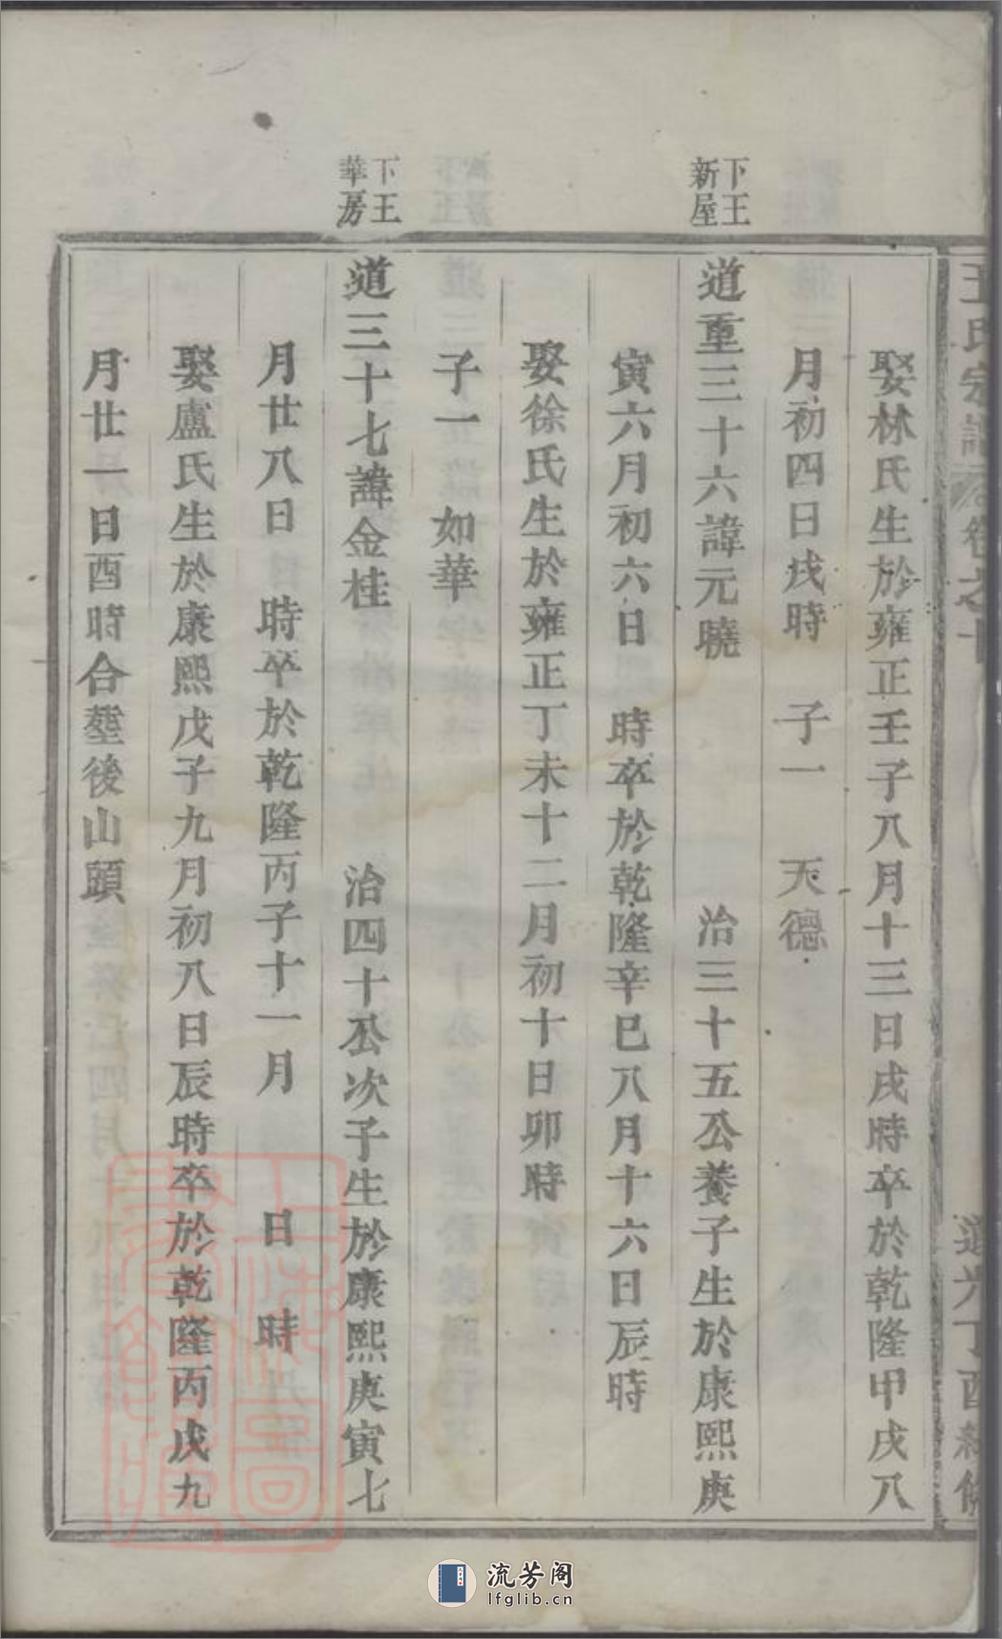 王氏宗譜 卷之十 道光丁酉
娶林氏生於雍正壬子八月十三日戌時卒於乾隆甲戌八
月初四日戌時 子一 天德
下王新屋
道重三十六諱元曉 治三十五公養子生於康熙庚
寅六月初六日 時卒於乾隆辛巳八月十六日辰時
娶徐氏生於雍正丁未十二月初十日卯時
子一 如華
下王華房
道三十七諱金桂 治四十公次子生於康熙庚寅七
月廿八日 時卒於乾隆丙子十一月 日 時
娶盧氏生於康熙戊子九月初八日辰時卒於乾隆丙戌九
月廿一日酉時合塟後山頭
流芳阁
lfglib.cn